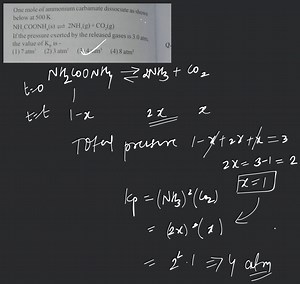 One mole of ammonium carbamate dissociate as shown
below at 500 K.
NH₂COONH₄(s) ⇌ 2NH₃(g) + CO₂(g)
If the pressure exerted by the released gases is 3.0 atm,
the value of Kₚ is -
(1) 7 atm³ (2) 3 atm³ atm³ (4) 8 atm³
NH₂COONH₄ ⇌ 2NH₃ + CO₂
t=0 1
t=t 1-x 2x x
Total pressure 1-x+2x+x=3
2x = 3-1 = 2
x=1
Kp = (NH₃)²(CO₂)
= (2x)²(x)
= 2²·1 ⇒ 4 atm